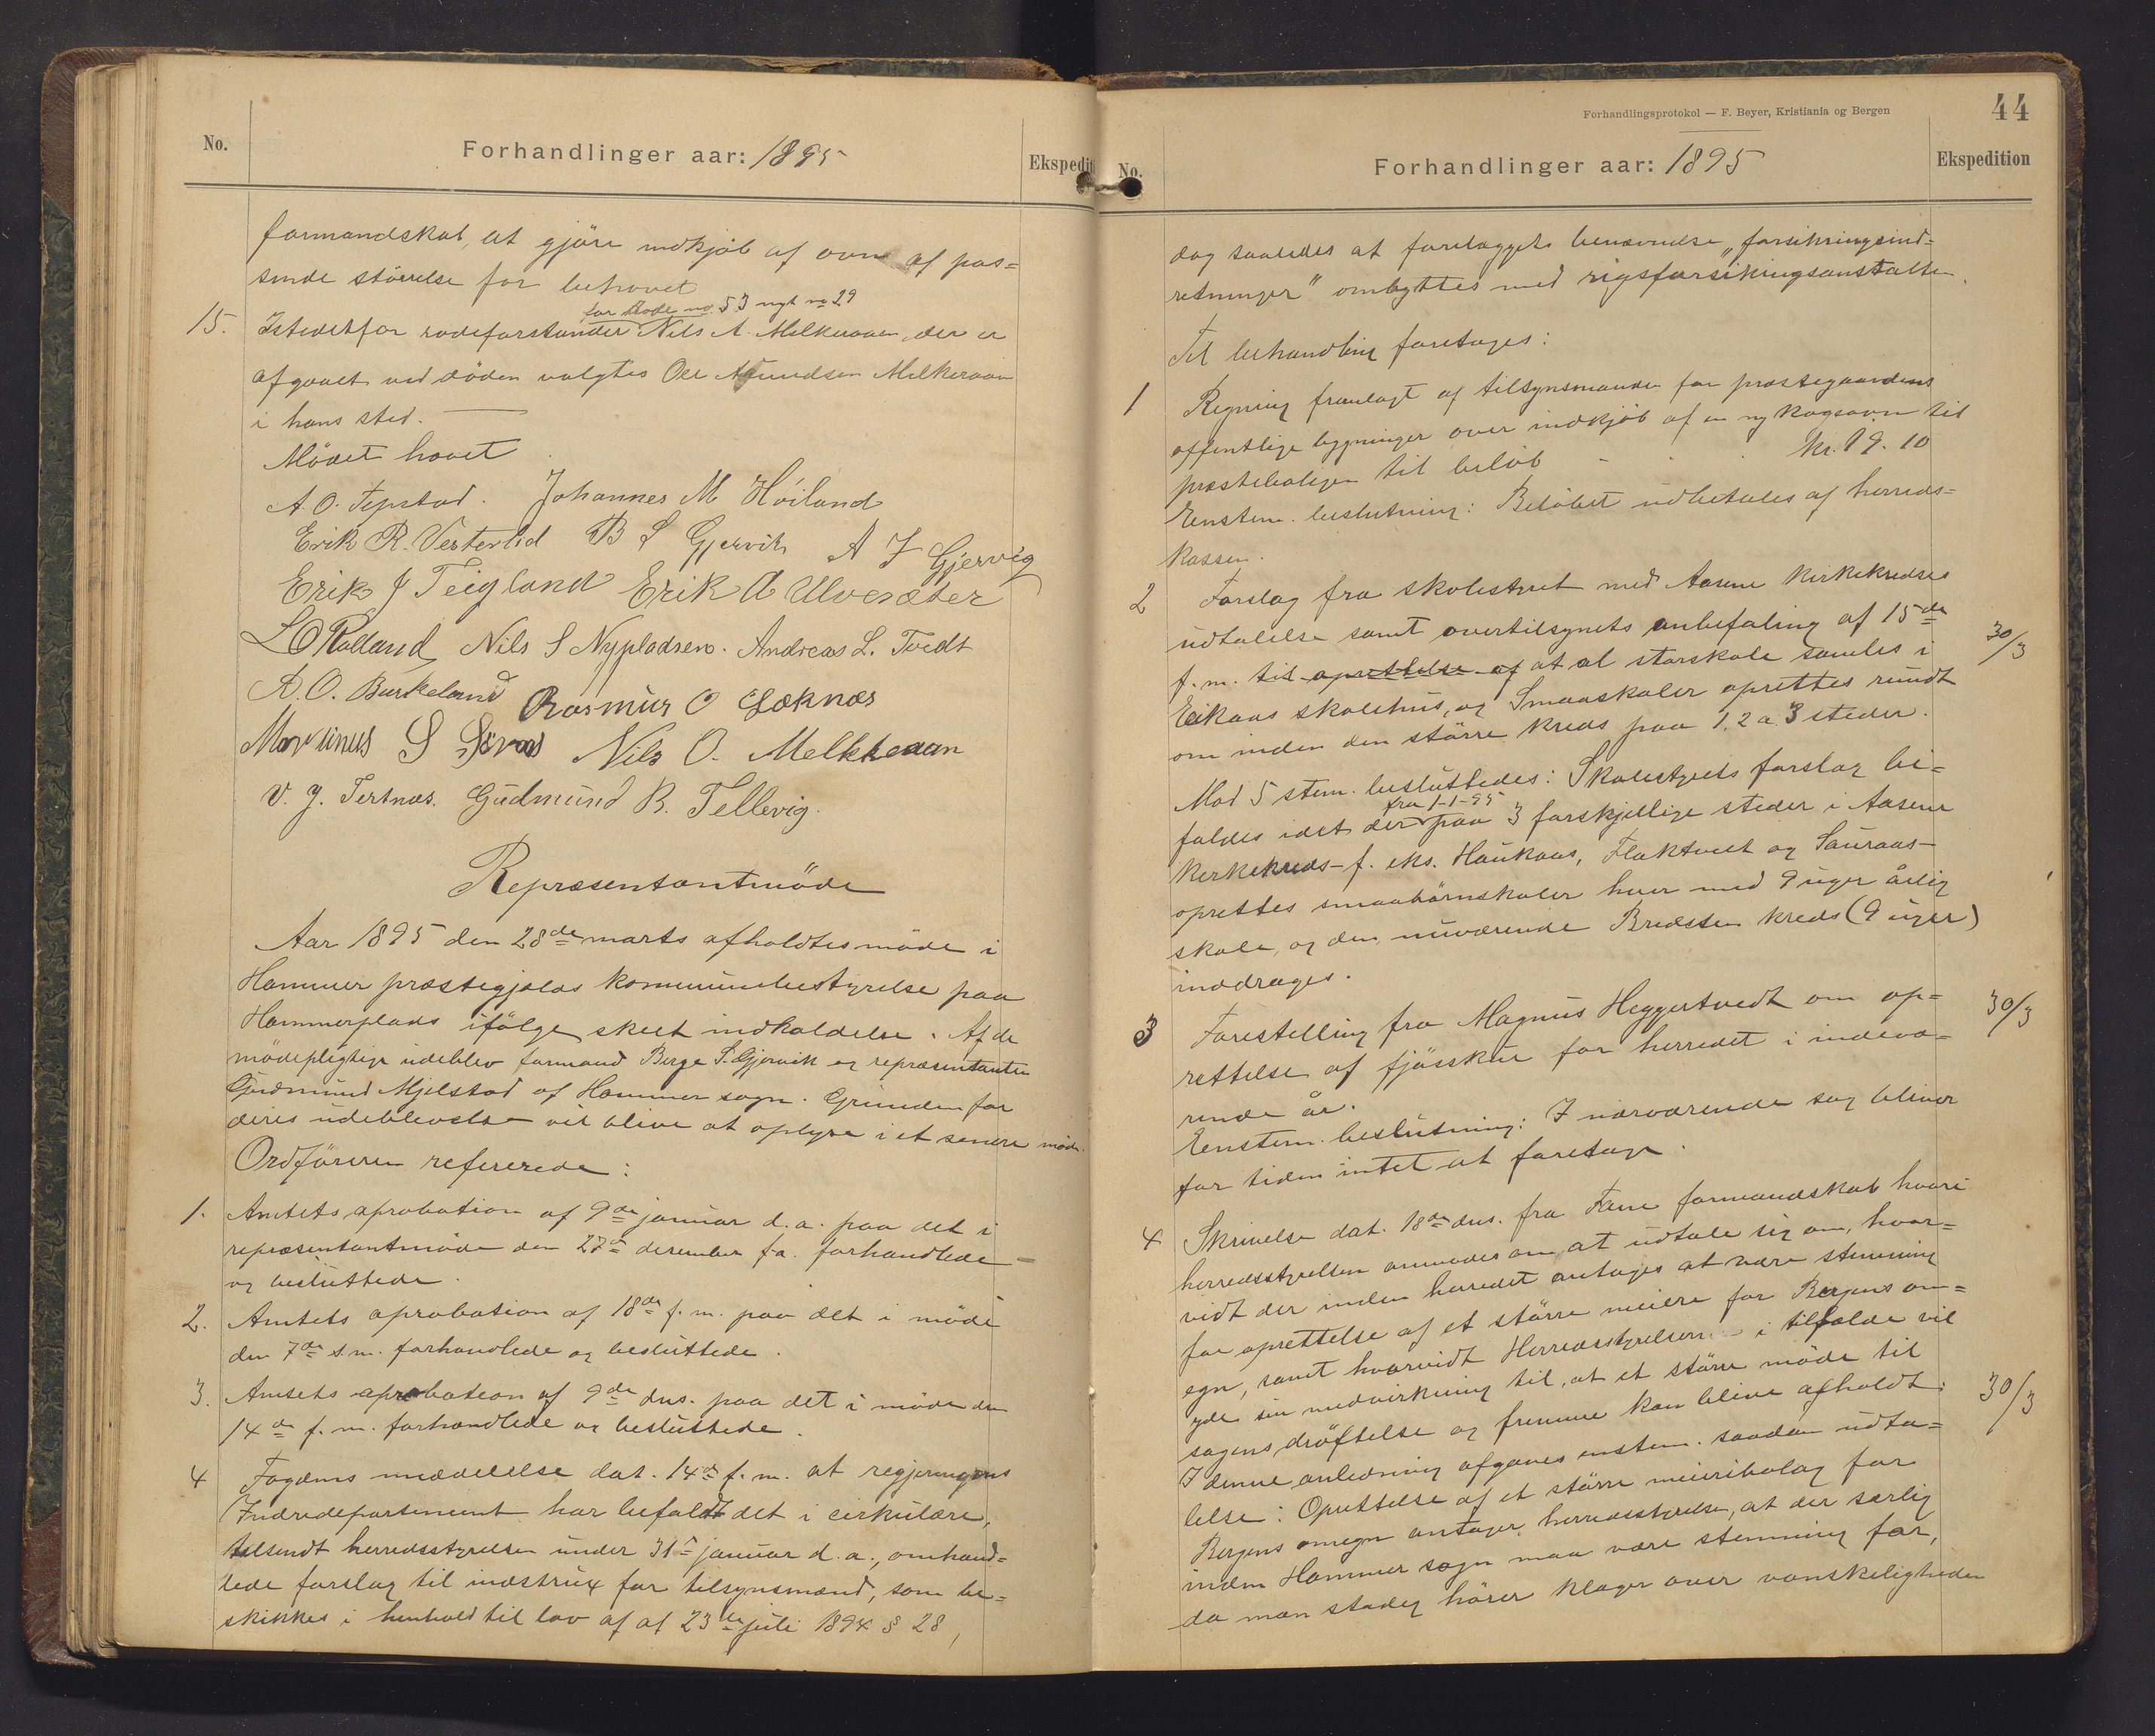 No.
Forhandlinger aar: 1895
Ekspedit
formandskab, at gjöre indkjöb af ovn af pas=
sende störrelse for behovet
for Rode no 53 nyt no 29
15. Istedetfor rodeforstander Nils A. Melkeraaen, der er
afgaaet ved döden valgtes Ole Amundsen Melkeraaen
i hans sted.
Mödet hævet
A. O. Tepstad. Johannes M Höiland
Erik R. Vesterlid B S Gjervik A J Gjervig
Erik J Teigland Erik A Ulvesæter
L O Rolland Nils S Nypladsen. Andreas L. Tvedt
A. O. Burkeland Rasmus O Læknæs
Martinus S Söraas Nils O. Melkeraaen
V. J. Tertnæs. Gudmund R. Tellevig.
Repræsentantmöde
Aar 1895 den 28de marts afholdtes möde i
Hammer præstegjelds kommunebestyrelse paa
Hammerplads ifölge skeet indkaldelse. Af de
mödepligtige udeblev formand Berge S. Gjervik og repræsentanten
Gudmund Mjelstad af Hammer sogn. Grunden for
deres udeblevelse vil blive at oplyse i et senere möde.
Ordföreren refererede:
1. Amtets aprobation af 9de januar d.a. paa det i
repræsentantmöde den 27de desember f.a. forhandlede
og besluttede.
2. Amtets aprobation af 18de f.m. paa det i möde
den 7de s.m. forhandlede og besluttede.
3. Amtets aprobation af 9de dns. paa det i möde den
14de f.m. forhandlede og besluttede.
4 Fogdens meddelelse dat. 14de f.m. at regjeringens
Indredepartement har befalet det i cirkulære,
tilsendt herredsstyrelsen under 31te januar d.a., omhand=
lede forslag til indstrux for tilsynsmænd, som be=
skikkes i henhold til lov af af 23de juli 1894 § 28,
Forhandlingsprotokol — F. Beyer, Kristiania og Bergen
44
No.
Forhandlinger aar: 1895
Ekspedition
dog saaledes at forelæggets benævnelse „forsikringsind=
retninger" ombyttes med rigsforsikringsanstalten.
Til behandling foretages:
1 Regning fremlagt af tilsynsmanden for præstegaardens
offentlige bygninger over indkjöb af en ny kogeovn til
præsteboligen til belöb kr. 19.10
Eenstem. beslutning: Belöbet udbetales af herreds=
kassen.
2 Forslag fra skolestyret med Aasene kirkekredses
udtalelse samt overtilsynets anbefaling af 15de
30/3
f.m. til oprettelse af at al storskole samles i
Eikaas skolehus, og Smaaskoler oprettes rundt
om inden den större kreds paa 1, 2 a 3 steder.
Mod 5 stem. besluttedes: Skolestyrets forslag bi=
fra 1-1-95
faldes idet der paa 3 forskjellige steder i Aasene
kirkekreds - f. eks. Haukaas, Flaktveit og Sauraas -
oprettes smaabörnskoler hver med 9 uger årlig
skole, og den nuværende Bredsten kreds (9 uger)
inddrages.
3 Forestelling fra Magnus Heggertvedt om op=
30/3
rettelse af fjösskue for herredet i indevæ=
rende år.
Eenstem. beslutning: I nærværende sag bliver
for tiden intet at foretage.
4 Skrivelse dat. 18de dns. fra Fane formandskab hvori
herredsstyrelsen anmodes om, at udtale sig om, hvor=
vidt der inden herredet antages at være stemning
for oprettelse af et större meieri for Bergens om=
egn, samt hvorvidt Herredsstyrelsen - i tilfælde vil
yde sin medvirkning til, at et större möde til
sagens dröftelse og fremme kan blive afholdt.
30/3
I denne anledning afgaves enstem. saadan udta=
lelse: Oprettelse af et större meieribolag for
Bergens omegn antager herredsstyrelsen, at der særlig
inden Hammer sogn maa være stemning for,
da man stadig hörer klager over vanskeligheden